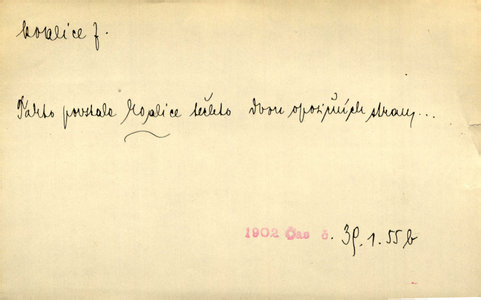 koalice f.
Takto povstala koalice těchto dvou oposičních stran...
1902 Čas č. 39.1.55b